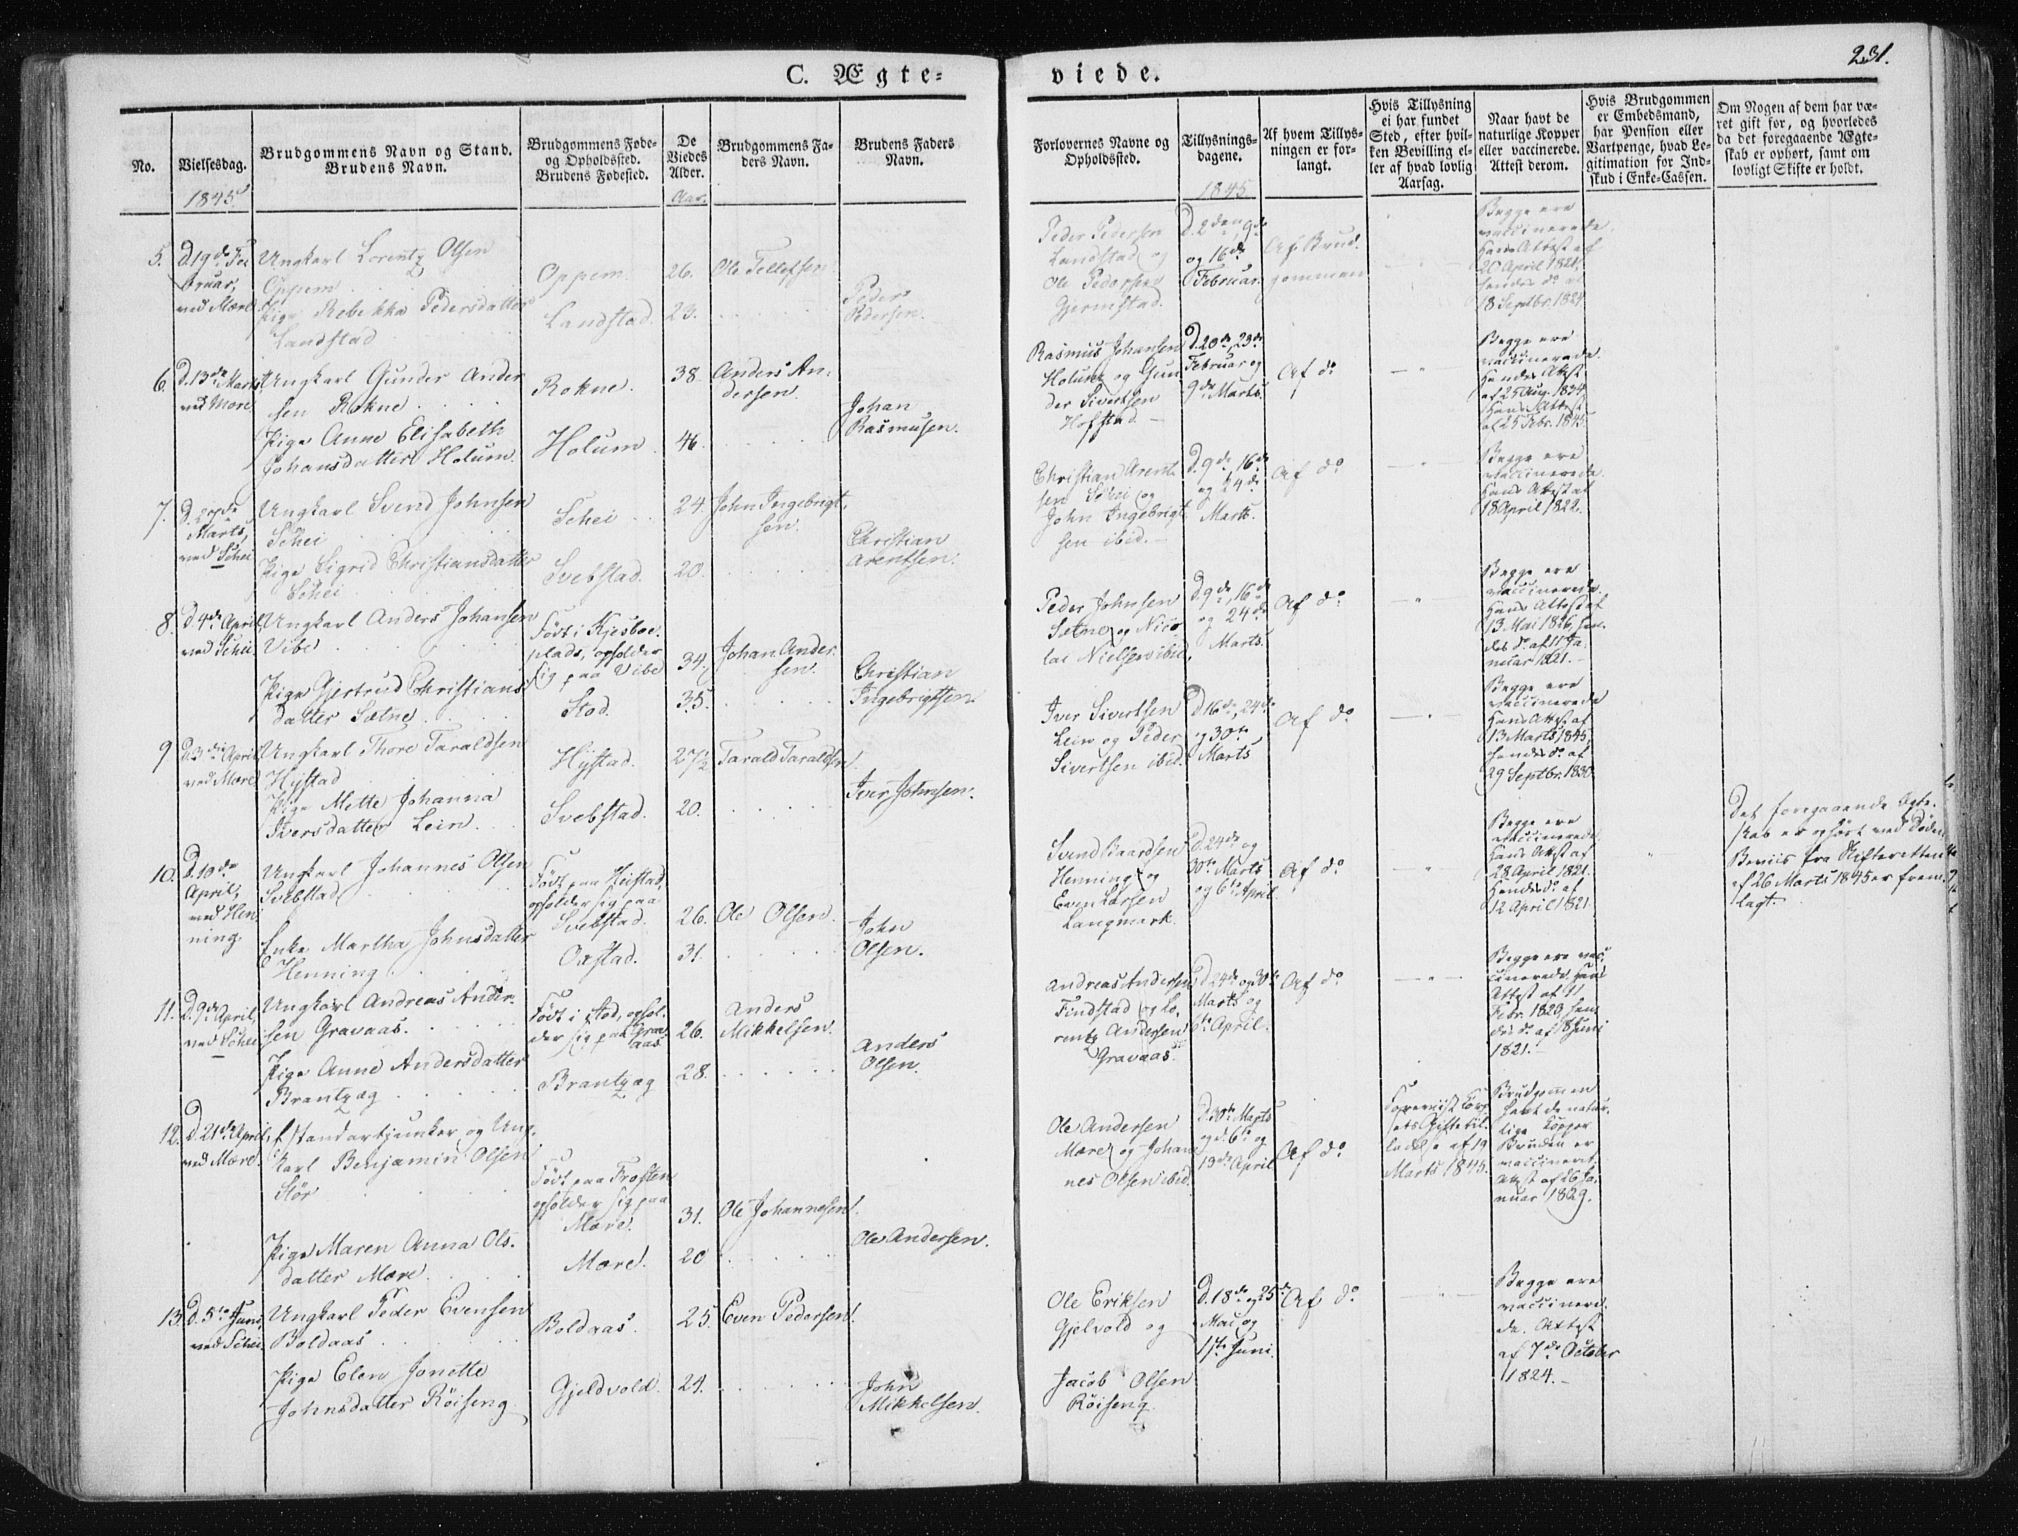 C. Ægte-
viede.
231.
No.
Vielsesdag.
1845
Brudgommens Navn og Stand.
Brudens Navn.
Brudgommens Føde-
og Opholdssted.
Brudens Fødested.
De
Viedes
Alder.
Aar.
Brudgommens Fa-
ders Navn.
Brudens Faders
Navn.
Forlovernes Navne og
Opholdssted.
Tillysnings-
dagene.
1845
Af hvem Tillys-
ningen er for-
langt.
Hvis Tillysning
ei har fundet
Sted, efter hvil-
ken Bevilling el-
ler af hvad lovlig
Aarsag.
Naar havt de
naturlige Kopper
eller vaccinerede.
Attest derom.
Hvis Brudgommen
er Embedsmand,
har Pension eller
Vartpenge, hvad Le-
gitimation for Ind-
skud i Enke-Cassen.
Om Nogen af dem har væ-
ret gift før, og hvorledes
da det foregaaende Ægte-
skab er ophørt, samt om
lovligt Skifte er holdt.
5.
D. 19de Fe-
bruar,
ved Mære
Ungkarl Lorentz Olsen
Oppem
Pige Rebekka Pedersdatter
Landstad
Oppem.
Landstad.
26.
23.
Ole Tellefsen
Peder
Pedersen.
Peder Pedersen
Landstad og
Ole Pedersen
Gjermstad.
D. 2den, 9de
og 16de
Februar.
Af Brud-
gommen
Begge ere
vaccinerede.
Hans Attest af
20 April 1821,
hendes do af
18 Septbr. 1824
6.
D. 13de Marts
ved Mære
Ungkarl Gunder Ander
sen Rokne
Pige Anne Elisabeth
Johansdatter Holum.
Rokne.
Holum
38.
46.
Anders An-
dersen.
Johan
Rasmusen.
Rasmus Johansen
Holum og Gun
der Sivertsen
Hofstad.
D. 20de, 23de
Februar og
9de Marts.
Af do
Begge ere
vaccinerede.
Hendes Attest
af 25 Aug. 1834
Hans Attest
af 25 Febr. 1845.
7.
Marts,
ved Schei
Ungkarl Svend Johnsen
Schei
Pige Sigrid Christiansdatter
Schei
Schei
Svebstad.
24.
20.
John Ingebrigt-
sen.
Christian
Arentsen.
Christian Arent-
sen Schei og
John Ingebrigt
sen ibid.
D. 9de, 16de
og 24de
Marts.
Af do
Begge ere
vaccinerede.
Hans Attest af
18 April 1822.
8.
D. 4de April,
ved Schei
Ungkarl Anders Johansen
Vibe
Pige Gjertrud Christians
datter Sætne
Født i
plads, opholder
sig paa Vibe
Stod.
34.
35.
Johan Ander-
sen.
Christian
Ingebrigtsen.
Peder Johnsen
Sætne og Nico
lai Nielsen ibid.
D. 9de, 16de
og 24de
Marts.
Af do
Begge ere
vaccinerede
Hans Attest af
13 Mai 1826, hen-
des do af 11 Ja-
nuar 1821.
9
D. 3die April
ved Mære
Ungkarl Thore Taraldsen
Hÿstad
Pige Mette Johanna
Iversdatter Lein.
Hÿstad.
Svebstad.
27½
20.
Tarald Taraldsen
Iver Johnsen.
Iver Sivertsen
Lein og Peder
Sivertsen ibid.
D. 16de, 24de
og 30te
Marts
Af do
Begge ere
vaccinerede
Hans Attest af
13 Marts 1845,
hendes do af
29 Septbr. 1830.
10.
D. 10de
April,
ved Hen
ning
Ungkarl Johannes Olsen
Svebstad
Enke Martha Johnsdatter
Henning
Født paa Heistad,
opholder sig paa
Svebstad.
Oxstad.
26.
31.
Ole Olsen.
John
Olsen.
Svend Baardsen
Henning og
Even Larsen
Langmark.
D. 24de og
30te Marts
og 6te April.
Af do
Begge ere
vaccinerede.
Hans Attest af
28 April 1821.
Hendes do af
12 April 1821
Det foregaaende Ægte-
skab er ophørt ved Døden.
Beviis fra Skifteretten
af 26 Marts 1845 er frem-
lagt.
11.
D. 9de April,
ved Schei
Ungkarl Andreas Ander-
sen Gravaas.
Pige Anne Andersdatter
Brantzæg
Født i Stod, ophol-
der sig paa Grav-
aas
Brantzæg
26.
28.
Anders
Mikkelsen.
Anders
Olsen.
Andreas Andersen
Findstad og Lo-
rentz Andersen
Gravaas
D. 24de og 30te
Marts og
6te April.
Af do
Begge ere vac-
cinerede, Hans
Attest af 11
Febr. 1820, hen-
des do af 18 Juni
1821.
12.
D. 21de April,
ved Mære.
Standartjunker og Ung-
karl Benjamin Olsen
Stör
Pige Maren Anna Ols-
datter Mære.
Født paa Frosten
opholder sig paa
Mære.
Mære.
31.
20
Ole Johannesen.
Ole Andersen.
Ole Andersen
Mære og Johan
nes Olsen ibid.
D. 30te Marts
og d. 6te og
13de April
Af do
Foreviist Cor
sets Giftetil-
ladelse af 19
Marts 1845.
Brudgommen
havt de natur-
lige Kopper
Bruden er
vaccineret.
Attest af 26 Ja-
nuar 1829.
13.
D. 5te Juni,
ved Schei
Ungkarl Peder Evensen
Boldaas
Pige Elen Jonette
Johnsdatter Röiseng
Boldaas.
Gjeldvold.
25.
24.
Even Pedersen.
John
Mikkelsen.
Ole Eriksen
Gjelvold og
Jacob Olsen
Röiseng.
D. 18de og 25de
Mai og
1ste Juni.
Af do
Begge ere
vaccinere-
de. Attest
af 7de October
1824.